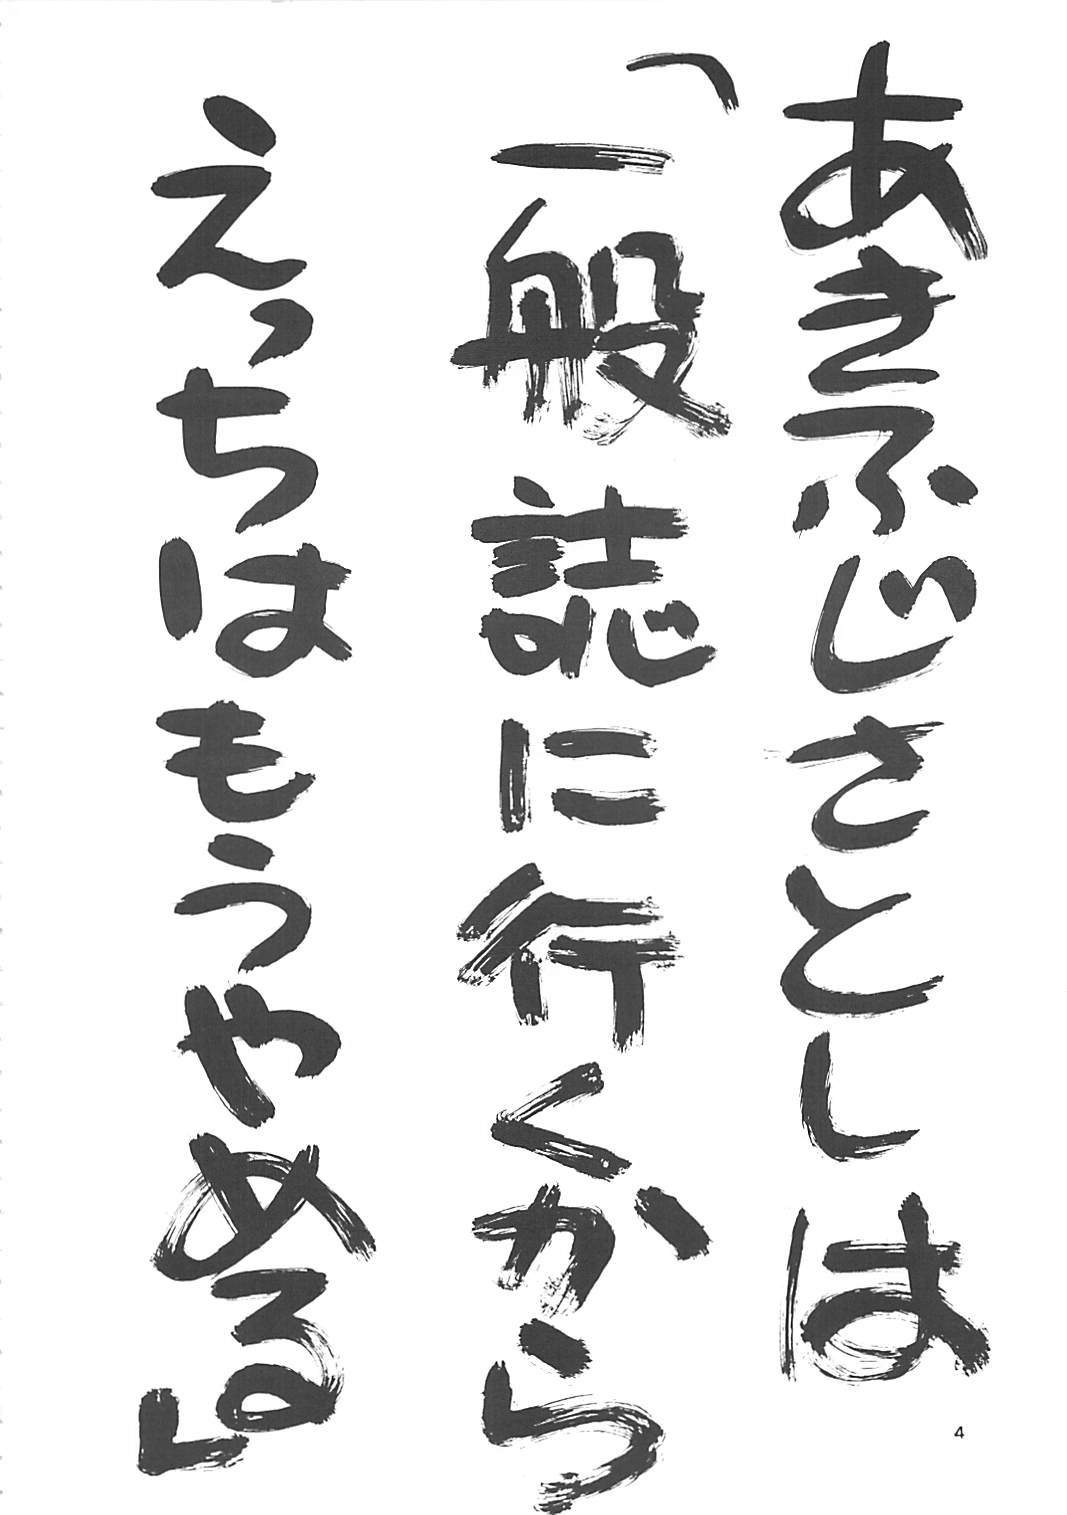 あきふじさとしは
「一般誌に行くから
えっちはもうやめる」
4